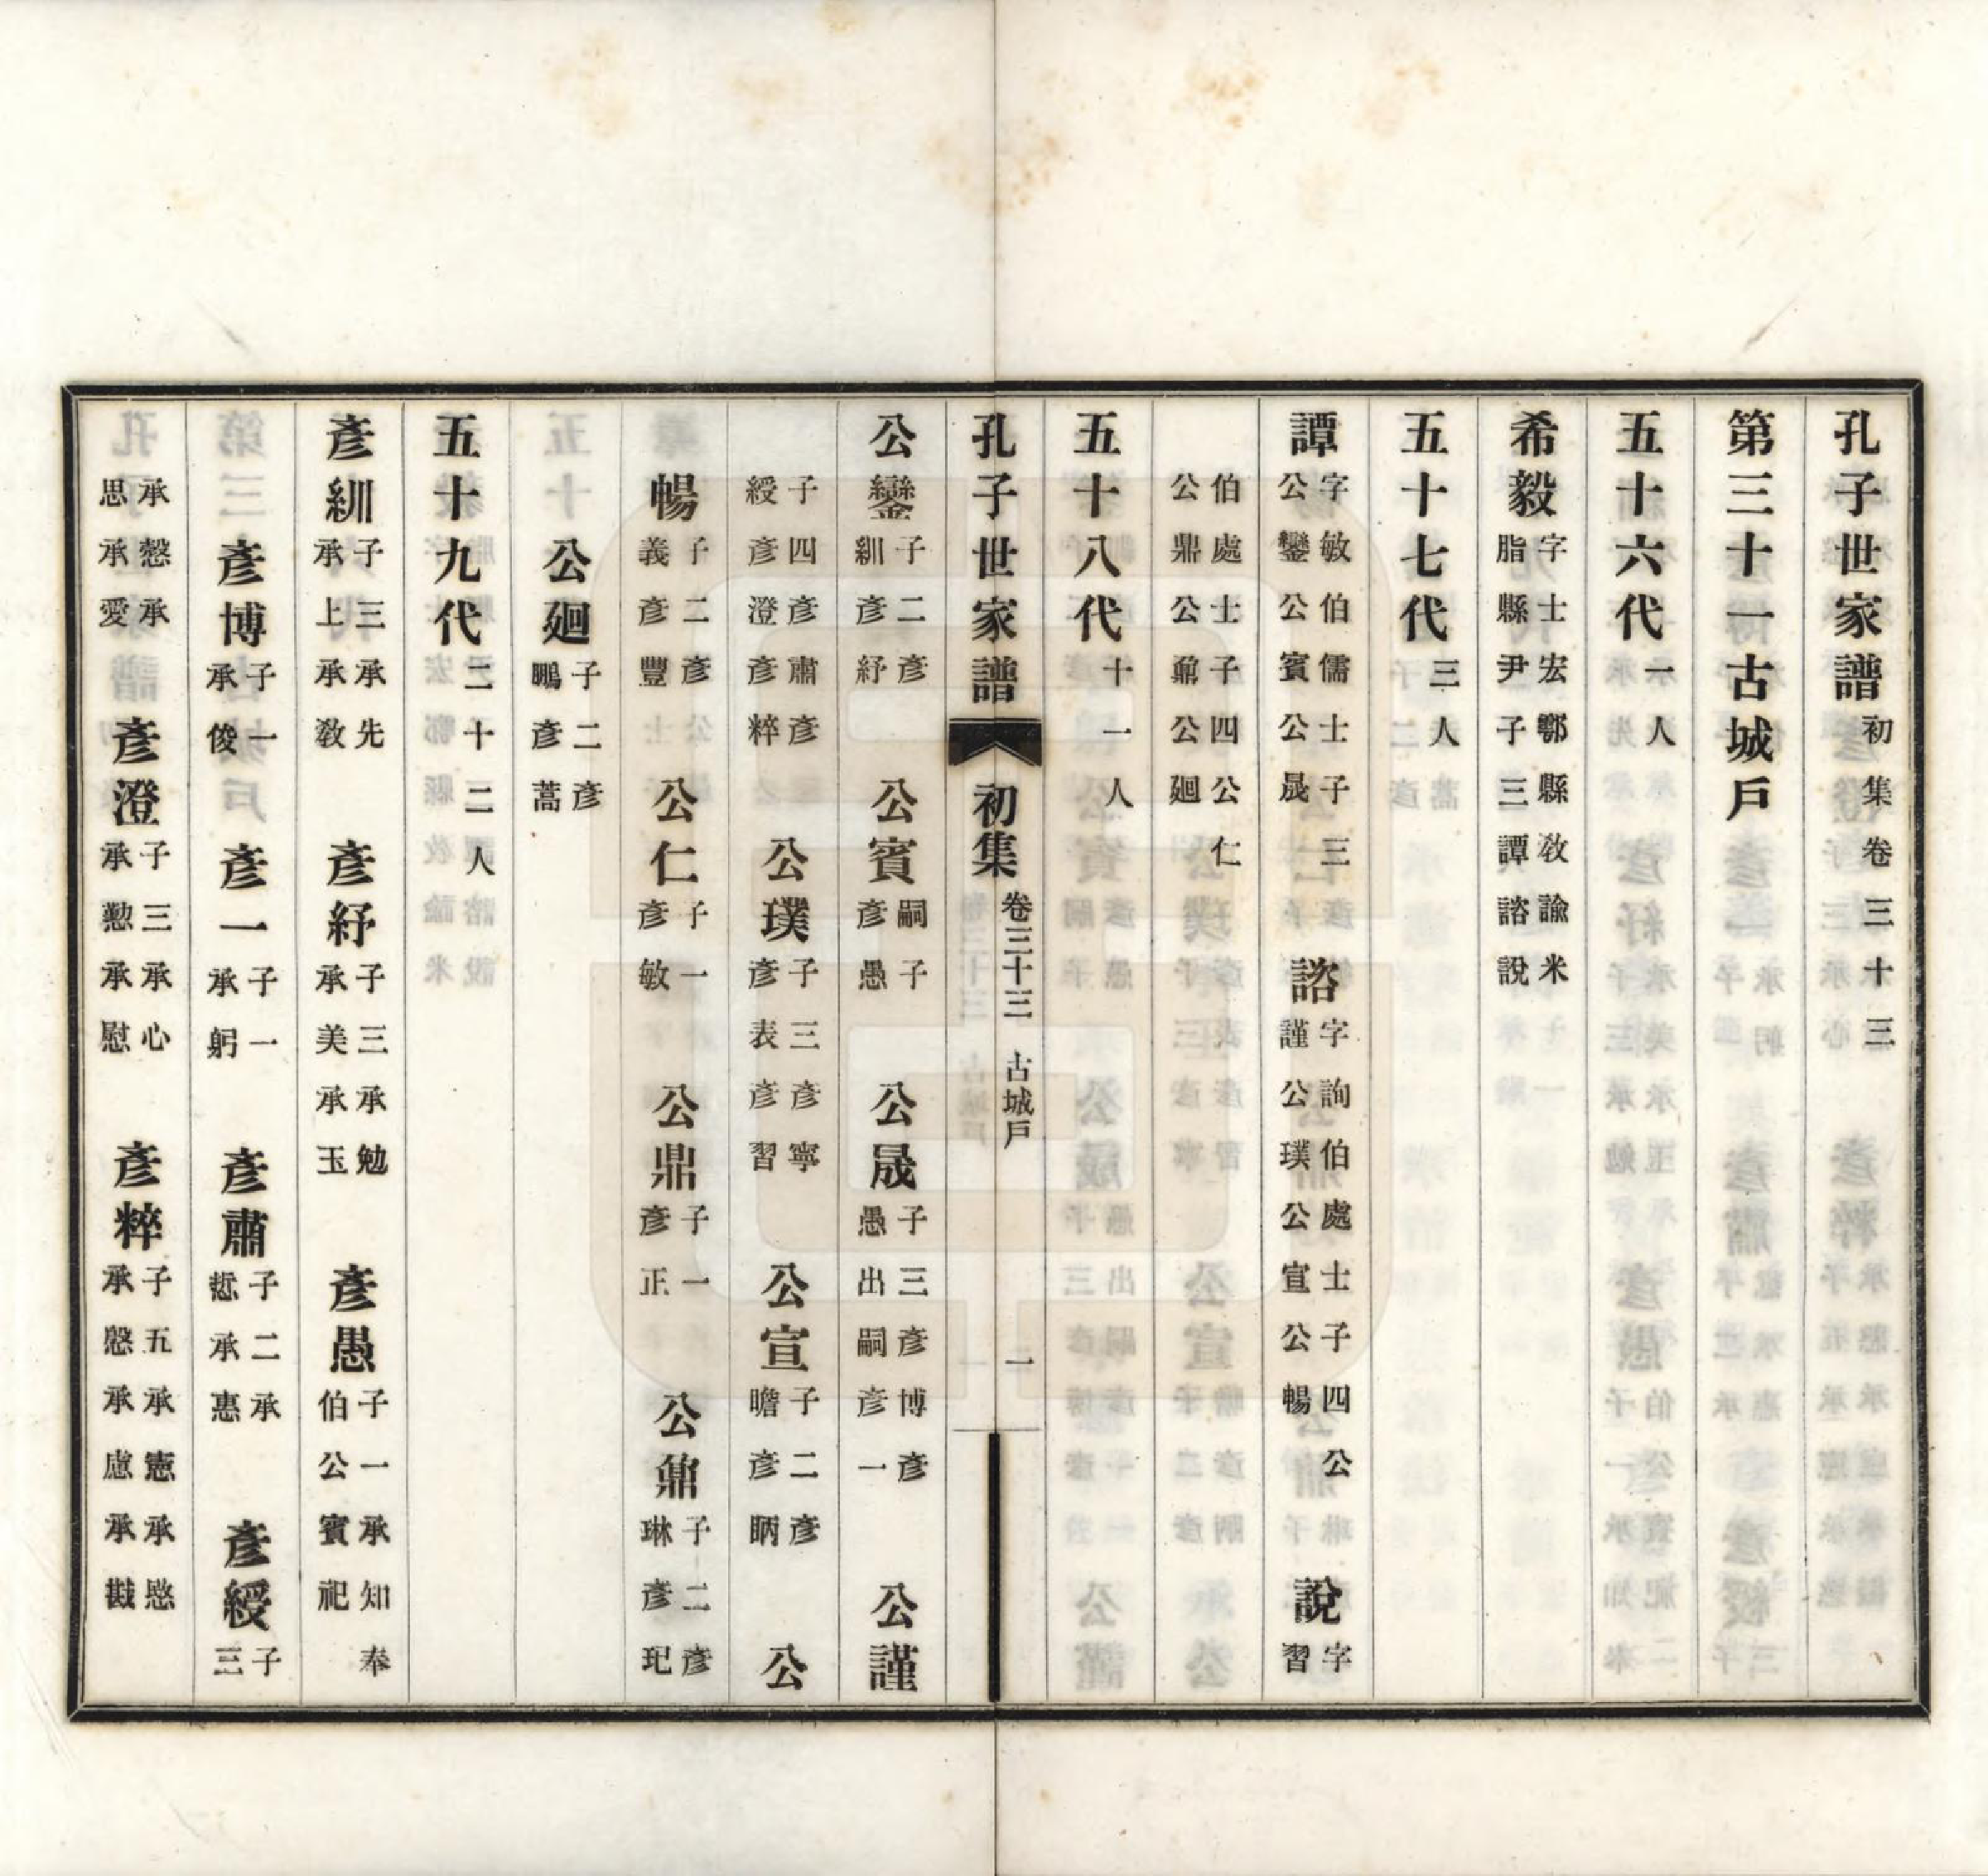 孔子世家譜初集卷三十三
第三十一古城戶
五十六代一人
希毅字士宏鄠縣敎諭米脂縣尹子三譚諮說
五十七代三人
譚字敏伯儒士子三公鑾公賓公晟 諮字詢伯處士子四公謹公璞公宣公暢 說字習
伯處士子四公仁公鼎公鼐公廻
五十八代十一人
孔子世家譜 初集卷三十三 古城戶 一
公鑾子二彥紃彥紓 公賓嗣子彥愚 公晟子三彥博彥愚出嗣彥一 公謹
子四彥肅彥綬彥澄彥粹 公璞子三彥寧彥表彥習 公宣子二彥瞻彥昞 公
暢子二彥義彥豐 公仁子一彥敏 公鼎子一彥正 公鼐子二彥琳彥玘
公廻子二彥鵬彥蒿
五十九代二十二人
彥紃子三承先承上承敎 彥紓子三承勉承美承玉 彥愚子一承知奉伯公賓祀
彥博子一承俊 彥一子一承躬 彥肅子二承悊承惠 彥綬子三
承愨承思承愛 彥澄子三承心承懃承慰 彥粹子五承憲承愍承慇承慮承戡